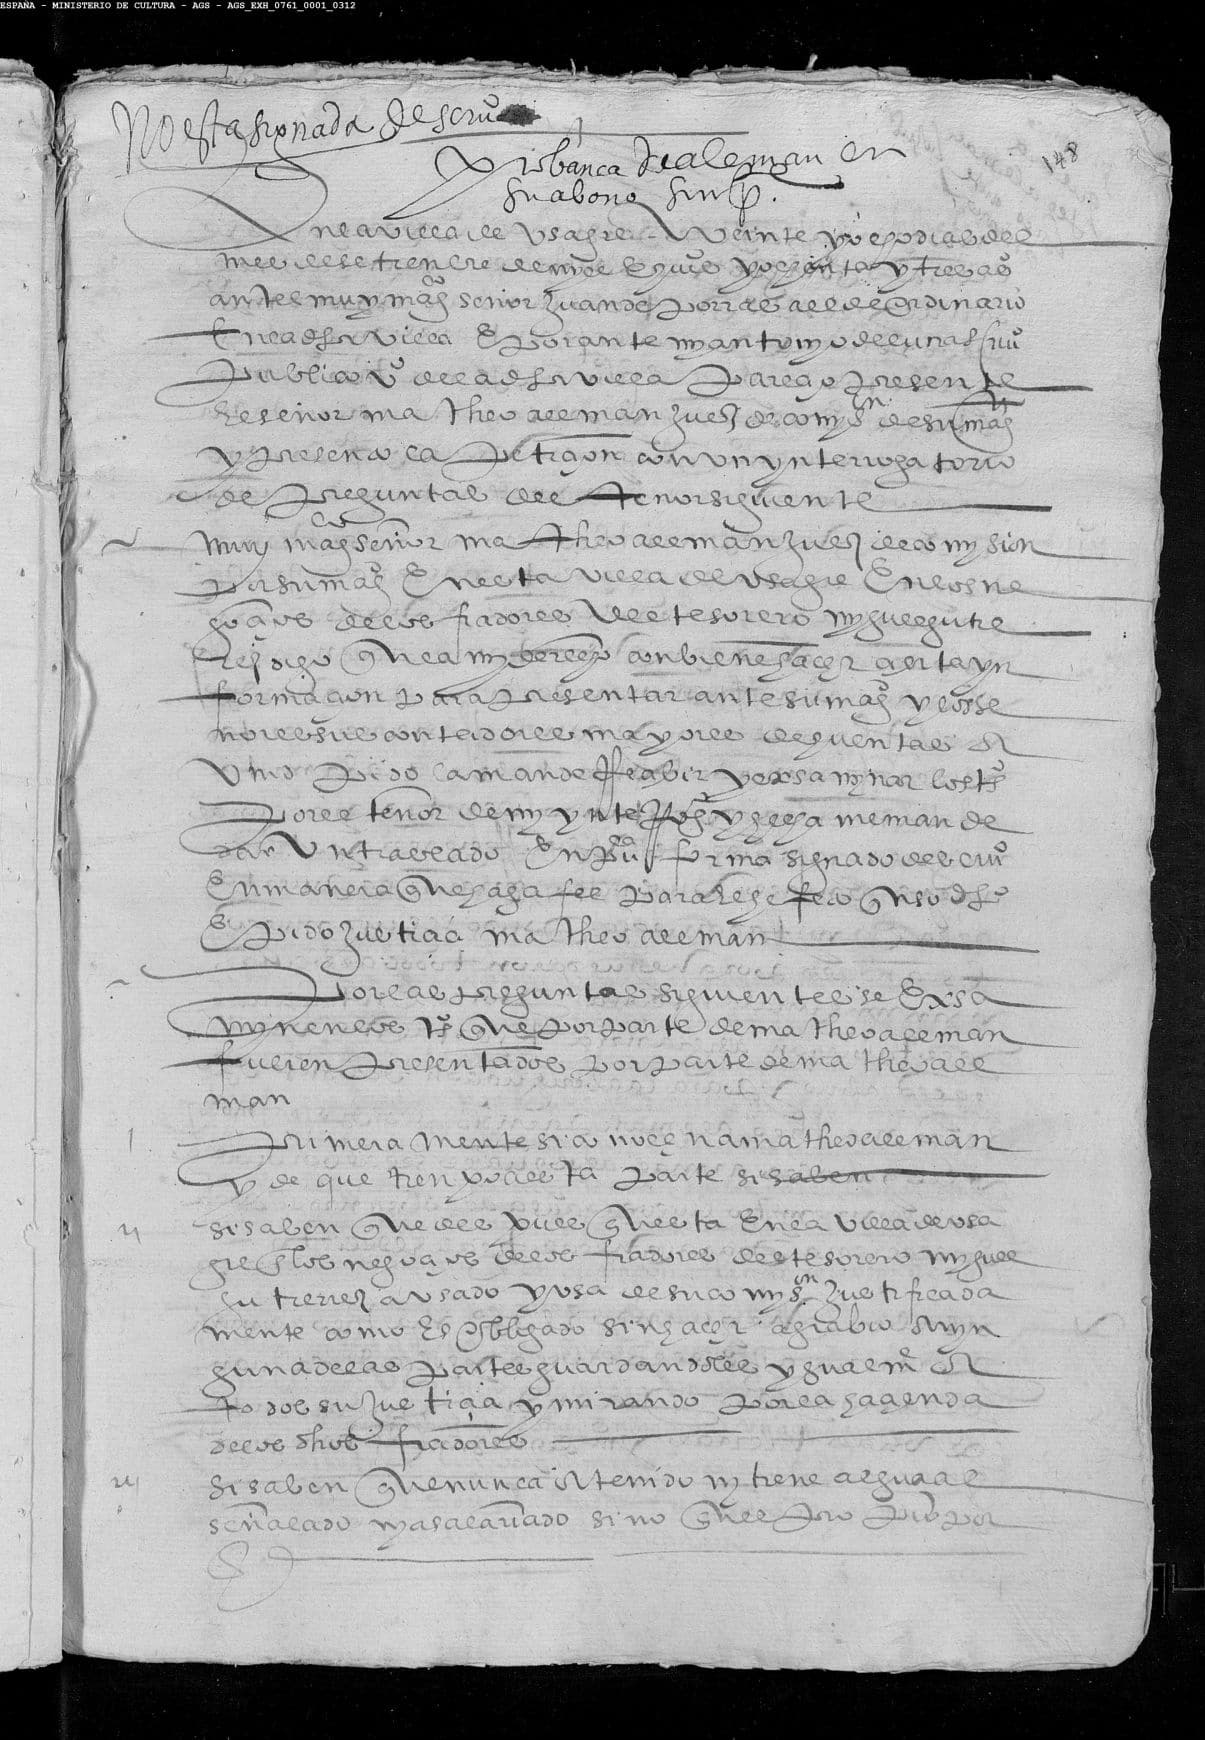 ESPAÑA - MINISTERIO DE CULTURA - AGS - AGS_EXH_0761_0001_0312
No esta sygnada de scriuº
148
prouança de aleman en
su abono
En la villa de vsagre veinte y ocho dias del
mes de setienbre de myll e quis y ochenta y tres aºs
ante el muy magco señor Juan de Porras allde hordinario
En la dha villa E por ante my antonyo de lunas scriuº
Publico vº de la dha villa Parecio Presente
El señor matheo aleman Juez de comysion de su magd
y Presento la Petiçion con vn ynterrogatorio
de Preguntas del tenor siguiente
muy magco señor matheo aleman Juez de comysion
Por su magd En esta villa de vsagre En los ne
goçios de los fiadores del tesorero myguel gutie
rrez digo que a my derecho conbiene haçer çierta yn
formaçion Para Presentar ante su magd y los se
ñores sus contadores mayores de quentas A
Vmd Pido la mande Rescebir y exsamynar los tºs
Por el tenor de my ynterrogº y hecha me mande
dar Vn traslado En puca forma signado de scriuº
En manera que haga fee Para el hefeto que uso dho
E Pido Justiçia matheo aleman
Por las Preguntas siguientes se Exsa
mynen los tºs que Por Parte de matheo aleman
fueren Presentados Por Parte de matheo ale
man
1 Primera mente si conoçen a matheo aleman
y de que tienpo a esta Parte si saben
ii si saben que des pues que esta En la villa de vsa
gre a los negoçios de los fiadores del tesorero myguel
gutierrez a vsado y vsa de su comysion Justificada
mente como Es obligado sin haçer agrabio a nyn
guna de las Partes guardandoles ygualmte A
todos su Justiçia y mirando Por la haçienda
de los dhos fiadores
iii si saben que nunca A tenido ny tiene alguaçil
señalado ny asalariado sino que el Pro Pio Por